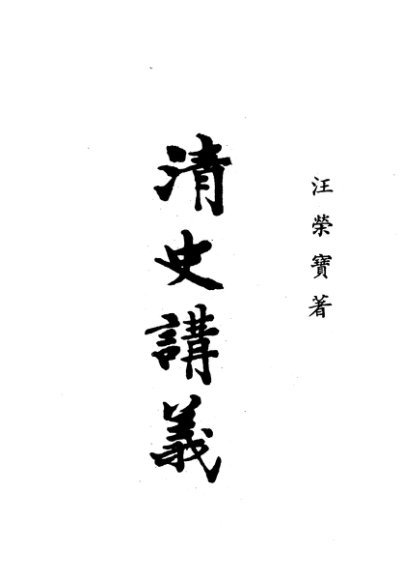 汪榮寶著
清史講義